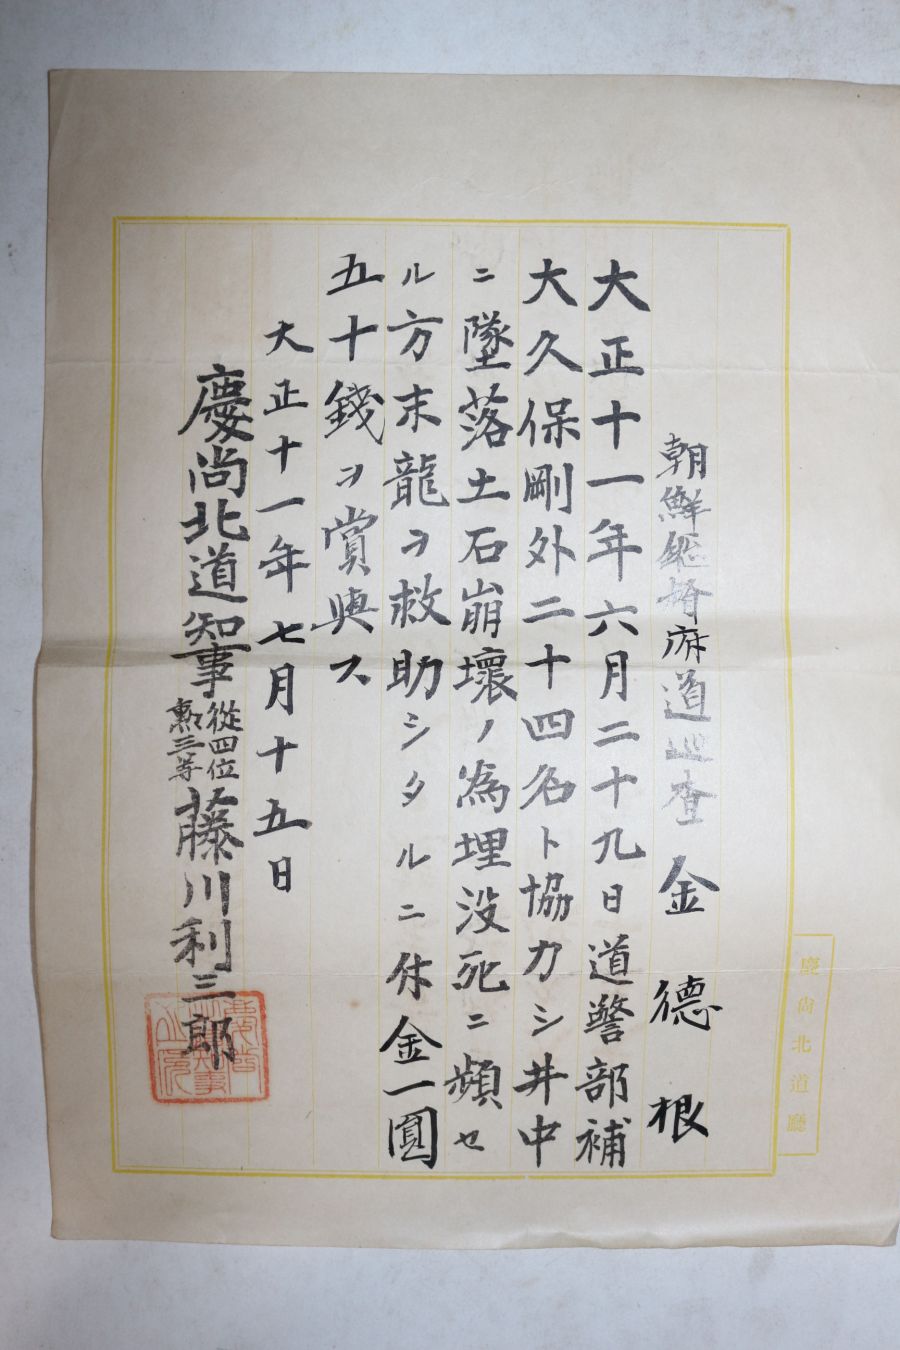 朝鮮總督府道巡査 金德根
大正十一年六月二十九日道警部補
大久保剛外二十四名ト協力シ井中
ニ墜落土石崩壞ノ為埋没死ニ頻セ
ル方末龍ヲ救助シタルニ付金一圓
五十錢ヲ賞與ス
大正十一年七月十五日
慶尚北道知事從四位勳三等藤川利三郎
慶尚北道廳